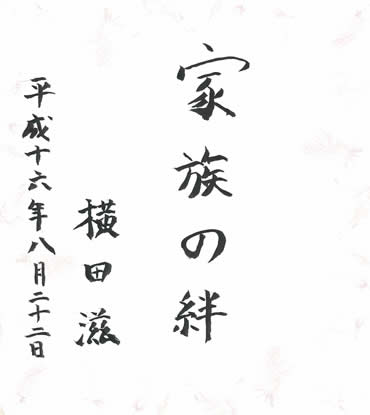 家族の絆
横田滋
平成十六年八月二十二日